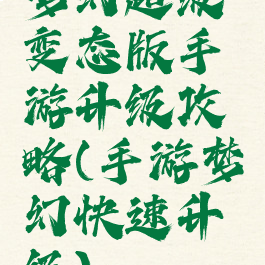 梦幻超级
变态版手
游升级攻
略(手游梦
幻快速升
级)